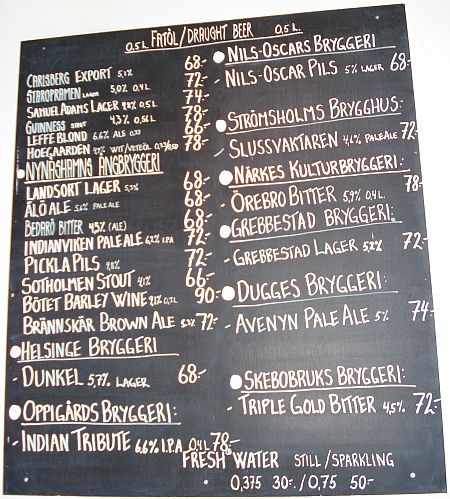 FATÖL/DRAUGHT BEER
0,5 L. 0,5 L.
CARLSBERG EXPORT 5,1% 68:-
STAROPRAMEN LAGER 5,0% 0,4L 72:-
SAMUEL ADAMS LAGER 4,8% 0,5L 74:-
GUINNESS STOUT 4,3% 0,56L 78:-
LEFFE BLOND 6,6% ALE 0,33 66:-
HOEGAARDEN WIT/VETEÖL 78:-
NYNÄSHAMNS ÅNGBRYGGERI
LANDSORT LAGER 5,3% 68:-
ÅLÖ ALE 5,6% PALE ALE 68:-
BEDARÖ BITTER 4,5% (ALE) 68:-
INDIANVIKEN PALE ALE 6,2% I.P.A 72:-
PICKLA PILS 4,8% 72:-
SOTHOLMEN STOUT 4,1% 66:-
BÖTET BARLEY WINE 9,1% 0,3L 90:-
BRÄNNSKÄR BROWN ALE 72:-
HELSINGE BRYGGERI
- DUNKEL 5,7% LAGER 68:-
OPPIGÅRDS BRYGGERI:
- INDIAN TRIBUTE 6,6% I.P.A 0,4L 78:-
NILS-OSCARS BRYGGERI
- NILS-OSCAR PILS 5% LAGER 68:-
STRÖMSHOLMS BRYGGHUS:
- SLUSSVAKTAREN 4,6% PALE ALE 72:-
NÄRKES KULTURBRYGGERI:
- ÖREBRO BITTER 5,9% 0,4L. 78:-
GREBBESTAD BRYGGERI:
- GREBBESTAD LAGER 5,2% 72:-
DUGGES BRYGGERI:
- AVENYN PALE ALE 5% 74:-
SKEBOBRUKS BRYGGERI:
- TRIPLE GOLD BITTER 4,5% 72:-
FRESH WATER STILL/SPARKLING
0,375 30:- / 0,75 50:-